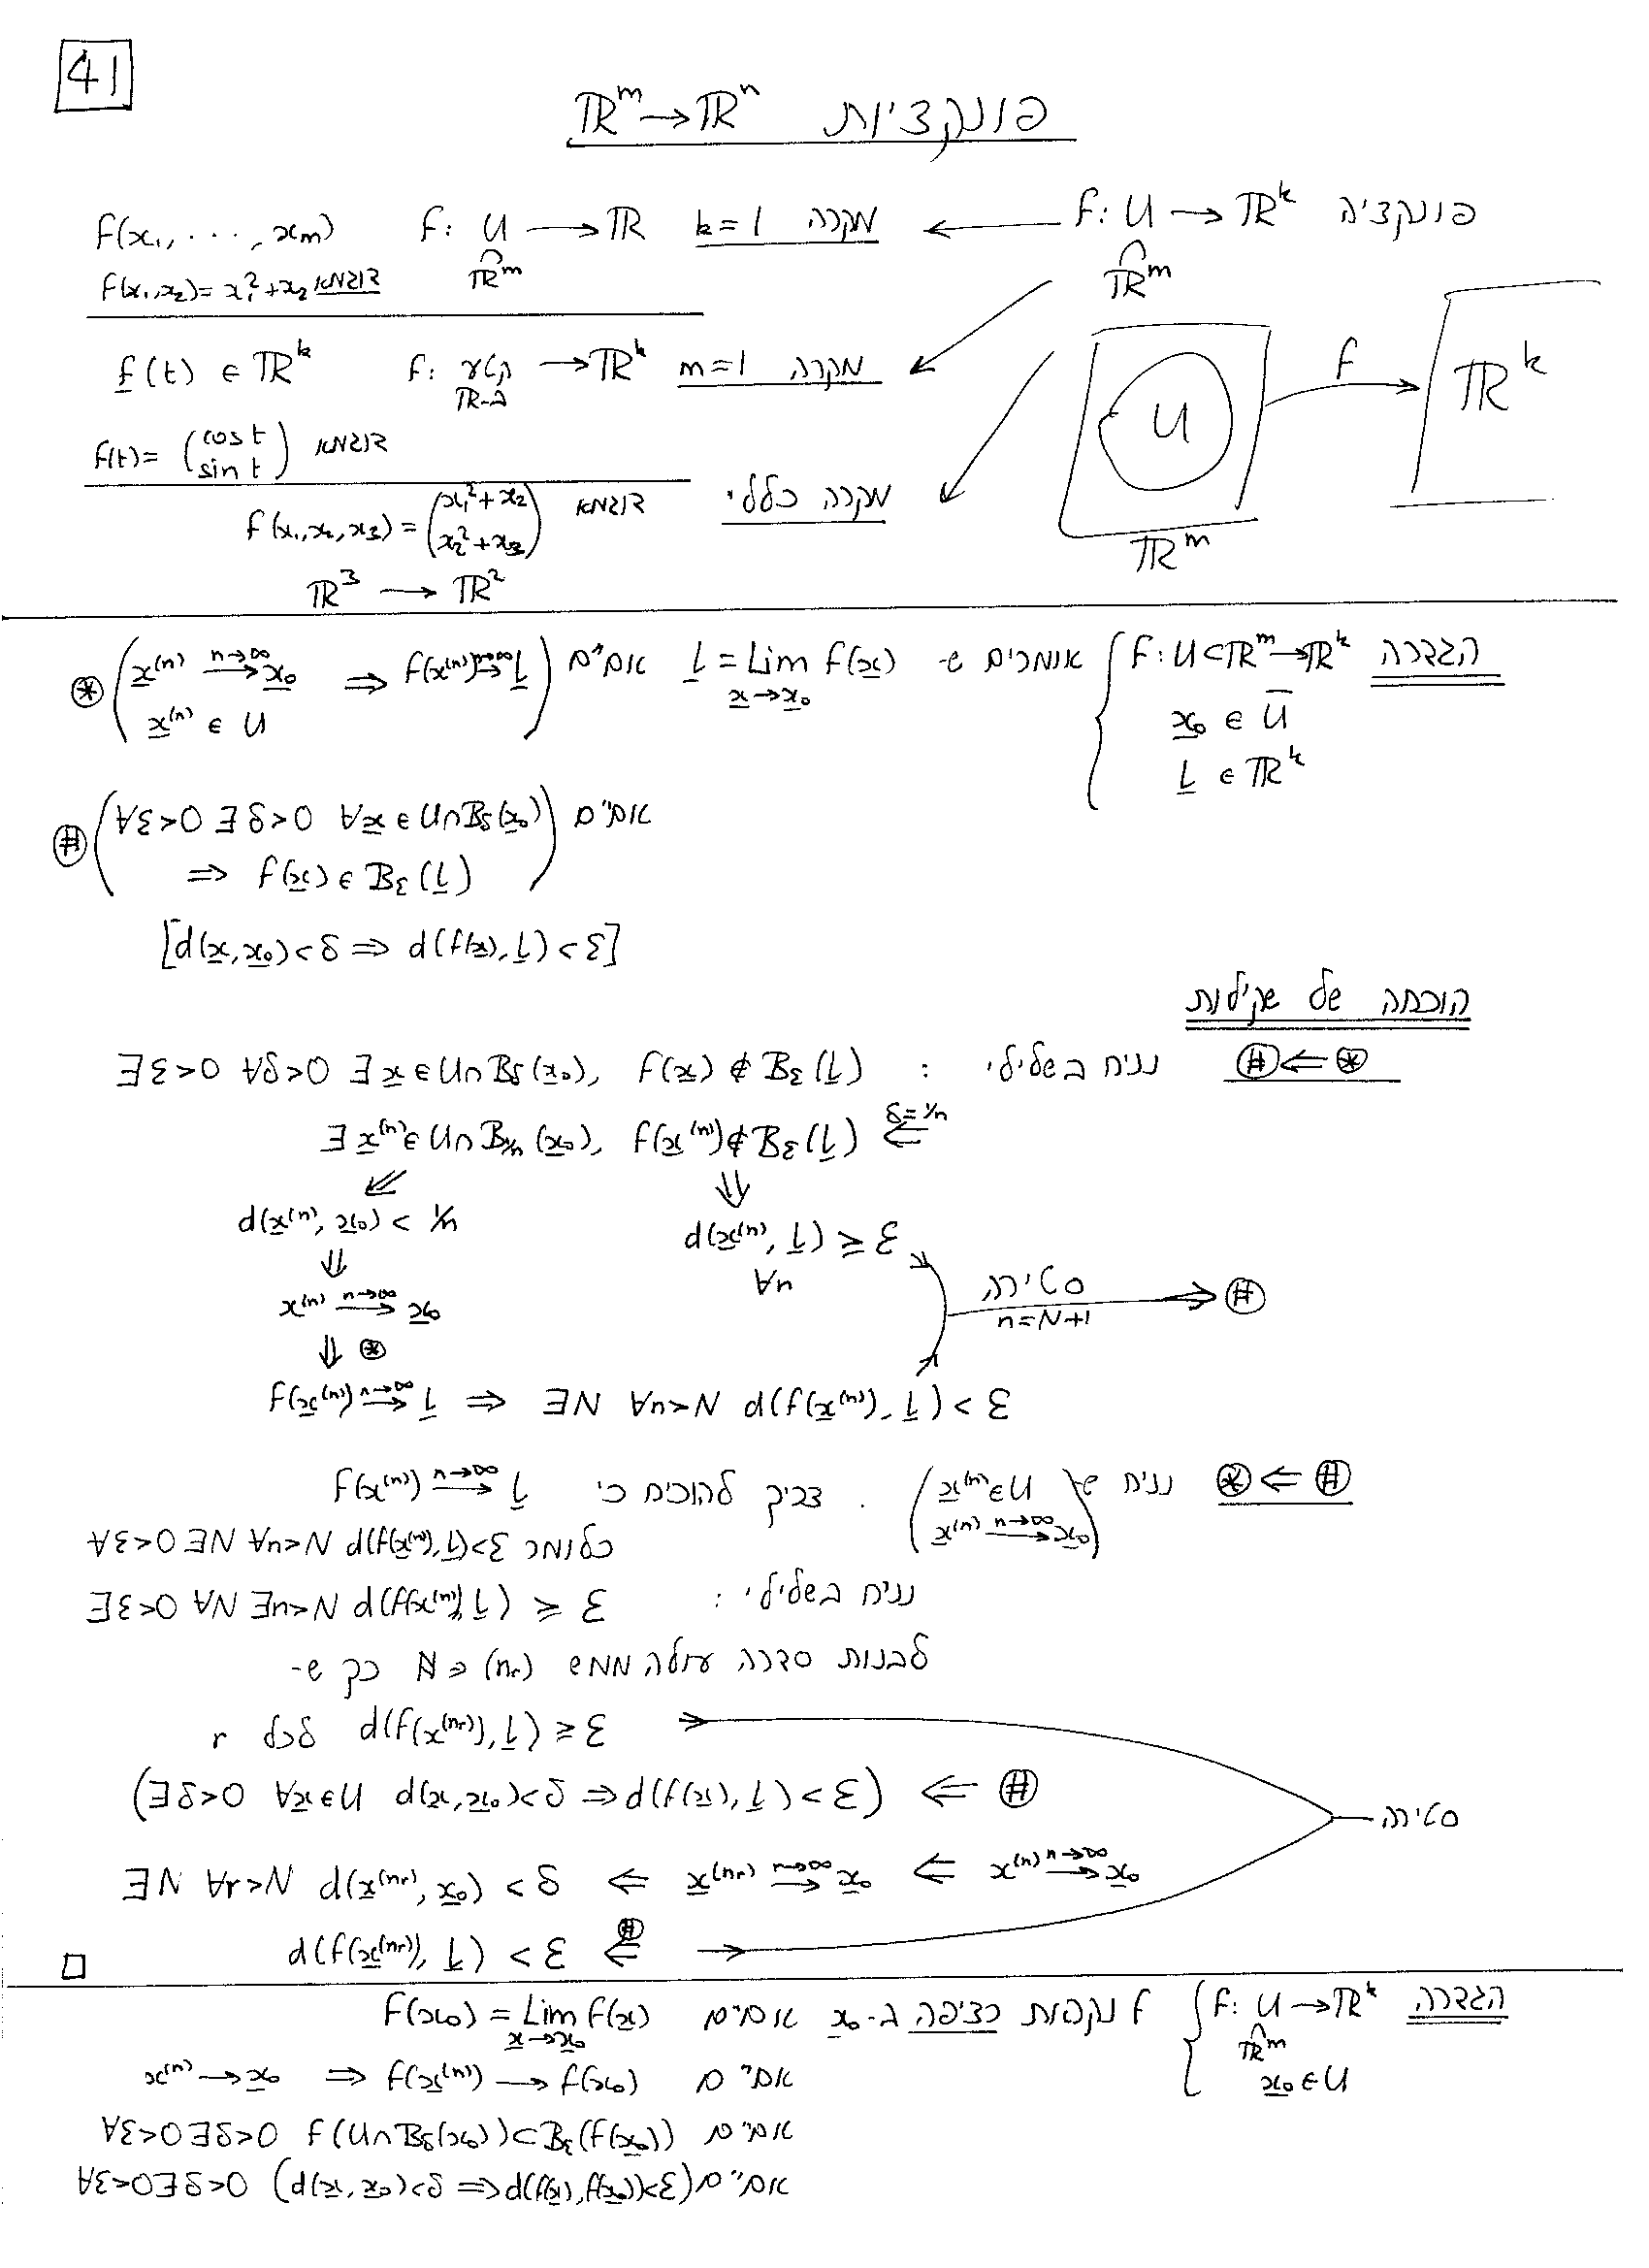 41
פונקציות ℝᵐ → ℝⁿ
פונקציה f: U → ℝᵏ
ℝᵐ
מקרה k=1 f: U → ℝ f(x₁, ..., xₘ)
ℝᵐ
דוגמא f(x₁,x₂) = x₁² + x₂
מקרה m=1 f: קטע → ℝᵏ f(t) ∈ ℝᵏ
ב-ℝ
דוגמא f(t) = (cos t
sin t)
מקרה כללי דוגמא f(x₁,x₂,x₃) = (x₁²+x₂
x₂²+x₃)
ℝ³ → ℝ²
U
ℝᵐ
f
ℝᵏ
הגדרה { f: U⊂ℝᵐ→ℝᵏ
x₀ ∈ Ū
L ∈ ℝᵏ
אומרים ש- L = Lim f(x)
x→x₀
אם"ם ( x⁽ⁿ⁾ →(n→∞) x₀ ⇒ f(x⁽ⁿ⁾) →(n→∞) L ) ⊛
x⁽ⁿ⁾ ∈ U
אם"ם ( ∀ε>0 ∃δ>0 ∀x ∈ U∩B_δ(x₀)
⇒ f(x) ∈ B_ε(L) ) (#)
[d(x,x₀)<δ ⇒ d(f(x),L)<ε]
הוכחה של שקילות
(#) ⇐ ⊛ נניח בשלילי : ∃ε>0 ∀δ>0 ∃x∈U∩B_δ(x₀), f(x)∉B_ε(L)
⇐(δ=1/n) ∃x⁽ⁿ⁾∈U∩B_1/n(x₀), f(x⁽ⁿ⁾)∉B_ε(L)
⇙ ⇓
d(x⁽ⁿ⁾,x₀) < 1/n d(x⁽ⁿ⁾,L) ≥ ε
⇓ ∀n
x⁽ⁿ⁾ →(n→∞) x₀ סתירה → (#)
n=N+1
⇓ ⊛
f(x⁽ⁿ⁾) →(n→∞) L ⇒ ∃N ∀n>N d(f(x⁽ⁿ⁾),L) < ε
⊛ ⇐ (#) נניח ש- ( x⁽ⁿ⁾∈U
x⁽ⁿ⁾ →(n→∞) x₀ ) . צריך להוכיח כי f(x⁽ⁿ⁾) →(n→∞) L
כלומר ∀ε>0 ∃N ∀n>N d(f(x⁽ⁿ⁾),L)<ε
נניח בשלילי : ∃ε>0 ∀N ∃n>N d(f(x⁽ⁿ⁾),L) ≥ ε
לבנות סדרה עולה ממש (nᵣ) ב ℕ כך ש-
d(f(x⁽ⁿʳ⁾),L) ≥ ε לכל r
(#) ⇒ (∃δ>0 ∀x∈U d(x,x₀)<δ ⇒ d(f(x),L)<ε)
סתירה
x⁽ⁿ⁾ →(n→∞) x₀ ⇒ x⁽ⁿʳ⁾ →(r→∞) x₀ ⇒ ∃N ∀r>N d(x⁽ⁿʳ⁾,x₀) < δ
⇐(#) d(f(x⁽ⁿʳ⁾),L) < ε
□
הגדרה { f: U → ℝᵏ
ℝᵐ
x₀∈U
f נקראת רציפה ב-x₀ אם"ם f(x₀) = Lim f(x)
x→x₀
אם"ם x⁽ⁿ⁾→x₀ ⇒ f(x⁽ⁿ⁾) → f(x₀)
אם"ם ∀ε>0 ∃δ>0 f(U∩B_δ(x₀)) ⊂ B_ε(f(x₀))
אם"ם ∀ε>0 ∃δ>0 (d(x,x₀)<δ ⇒ d(f(x),f(x₀))<ε)